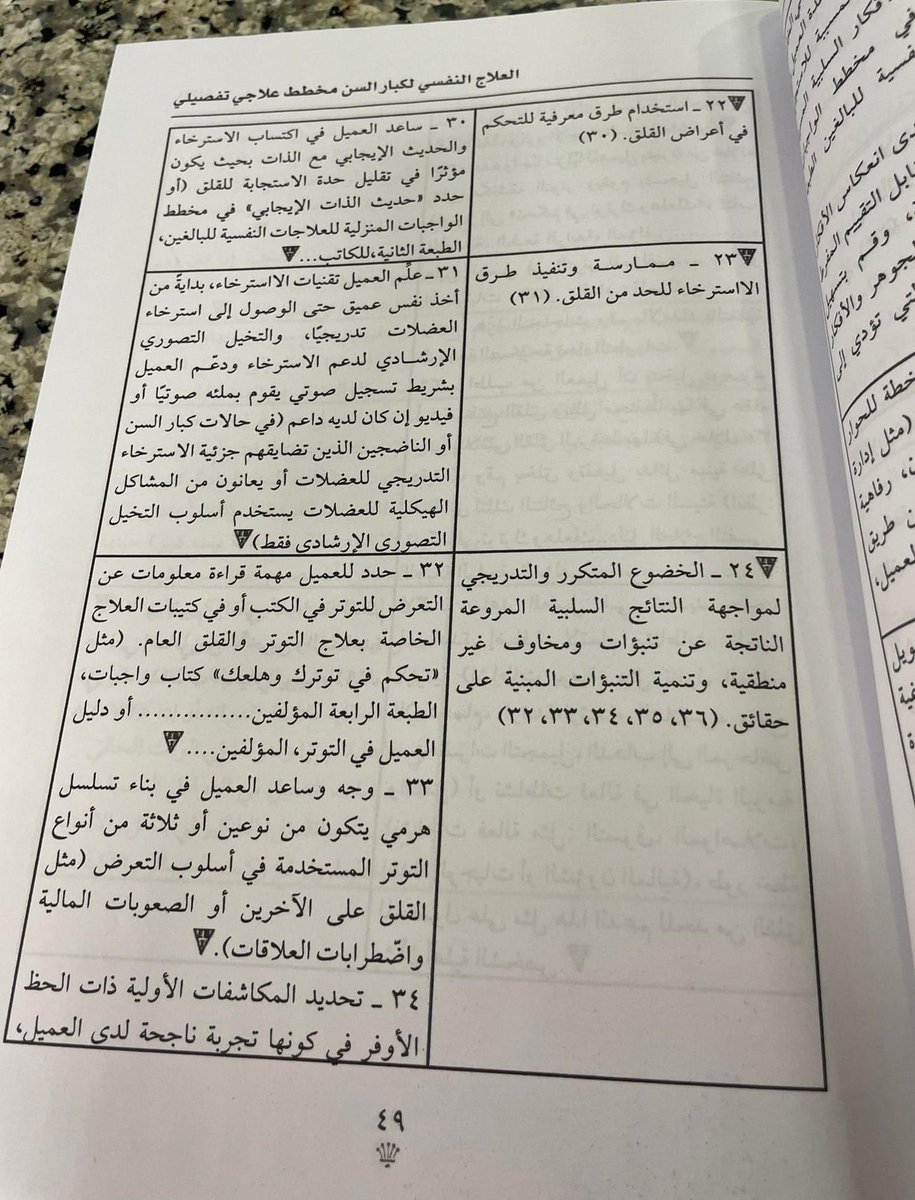 العلاج النفسي لكبار السن مخطط علاجي تفصيلي
٢٢ ـ استخدام طرق معرفية للتحكم
في أعراض القلق. (٣٠)
٣٠ ـ ساعد العميل في اكتساب الاسترخاء
والحديث الإيجابي مع الذات بحيث يكون
مؤثرًا في تقليل حدة الاستجابة للقلق (أو
حدد «حديث الذات الإيجابي» في مخطط
الواجبات المنزلية للعلاجات النفسية للبالغين،
الطبعة الثانية،للكاتب...
٢٣ ـ ممارسة وتنفيذ طرق
الااسترخاء للحد من القلق. (٣١)
٣١ ـ علِّم العميل تقنيات الااسترخاء، بدايةً من
أخذ نفس عميق حتى الوصول إلى استرخاء
العضلات تدريجيًا، والتخيل التصوري
الإرشادي لدعم الاسترخاء ودعّم العميل
بشريط تسجيل صوتي يقوم بملئه صوتيًا أو
فيديو إن كان لديه داعم (في حالات كبار السن
أو الناضجين الذين تضايقهم جزئية الاسترخاء
التدريجي للعضلات أو يعانون من المشاكل
الهيكلية للعضلات يستخدم أسلوب التخيل
التصوري الإرشادي فقط)
٢٤ ـ الخضوع المتكرر والتدريجي
لمواجهة النتائج السلبية المروعة
الناتجة عن تنبؤات ومخاوف غير
منطقية، وتنمية التنبؤات المبنية على
حقائق. (٣٦، ٣٥، ٣٤، ٣٣، ٣٢)
٣٢ ـ حدد للعميل مهمة قراءة معلومات عن
التعرض للتوتر في الكتب أو في كتيبات العلاج
الخاصة بعلاج التوتر والقلق العام. (مثل
«تحكم في توترك وهلعك» كتاب واجبات،
الطبعة الرابعة المؤلفين............... أو دليل
العميل في التوتر، المؤلفين....
٣٣ ـ وجه وساعد العميل في بناء تسلسل
هرمي يتكون من نوعين أو ثلاثة من أنواع
التوتر المستخدمة في أسلوب التعرض (مثل
القلق على الآخرين أو الصعوبات المالية
واضّطرابات العلاقات).
٣٤ ـ تحديد المكاشفات الأولية ذات الحظ
الأوفر في كونها تجربة ناجحة لدى العميل،
٤٩